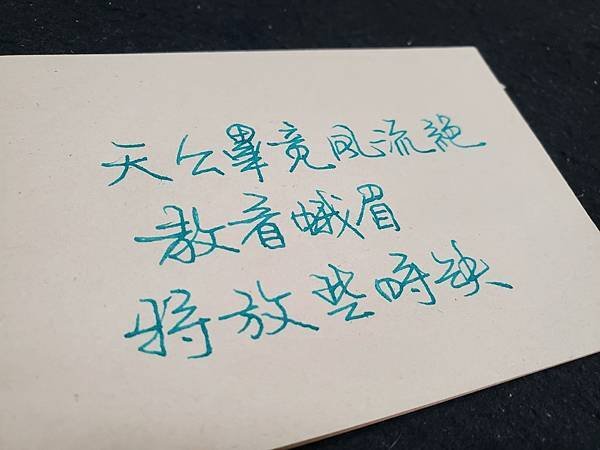 天公畢竟风流絕
教看蛾眉
特放些時缺